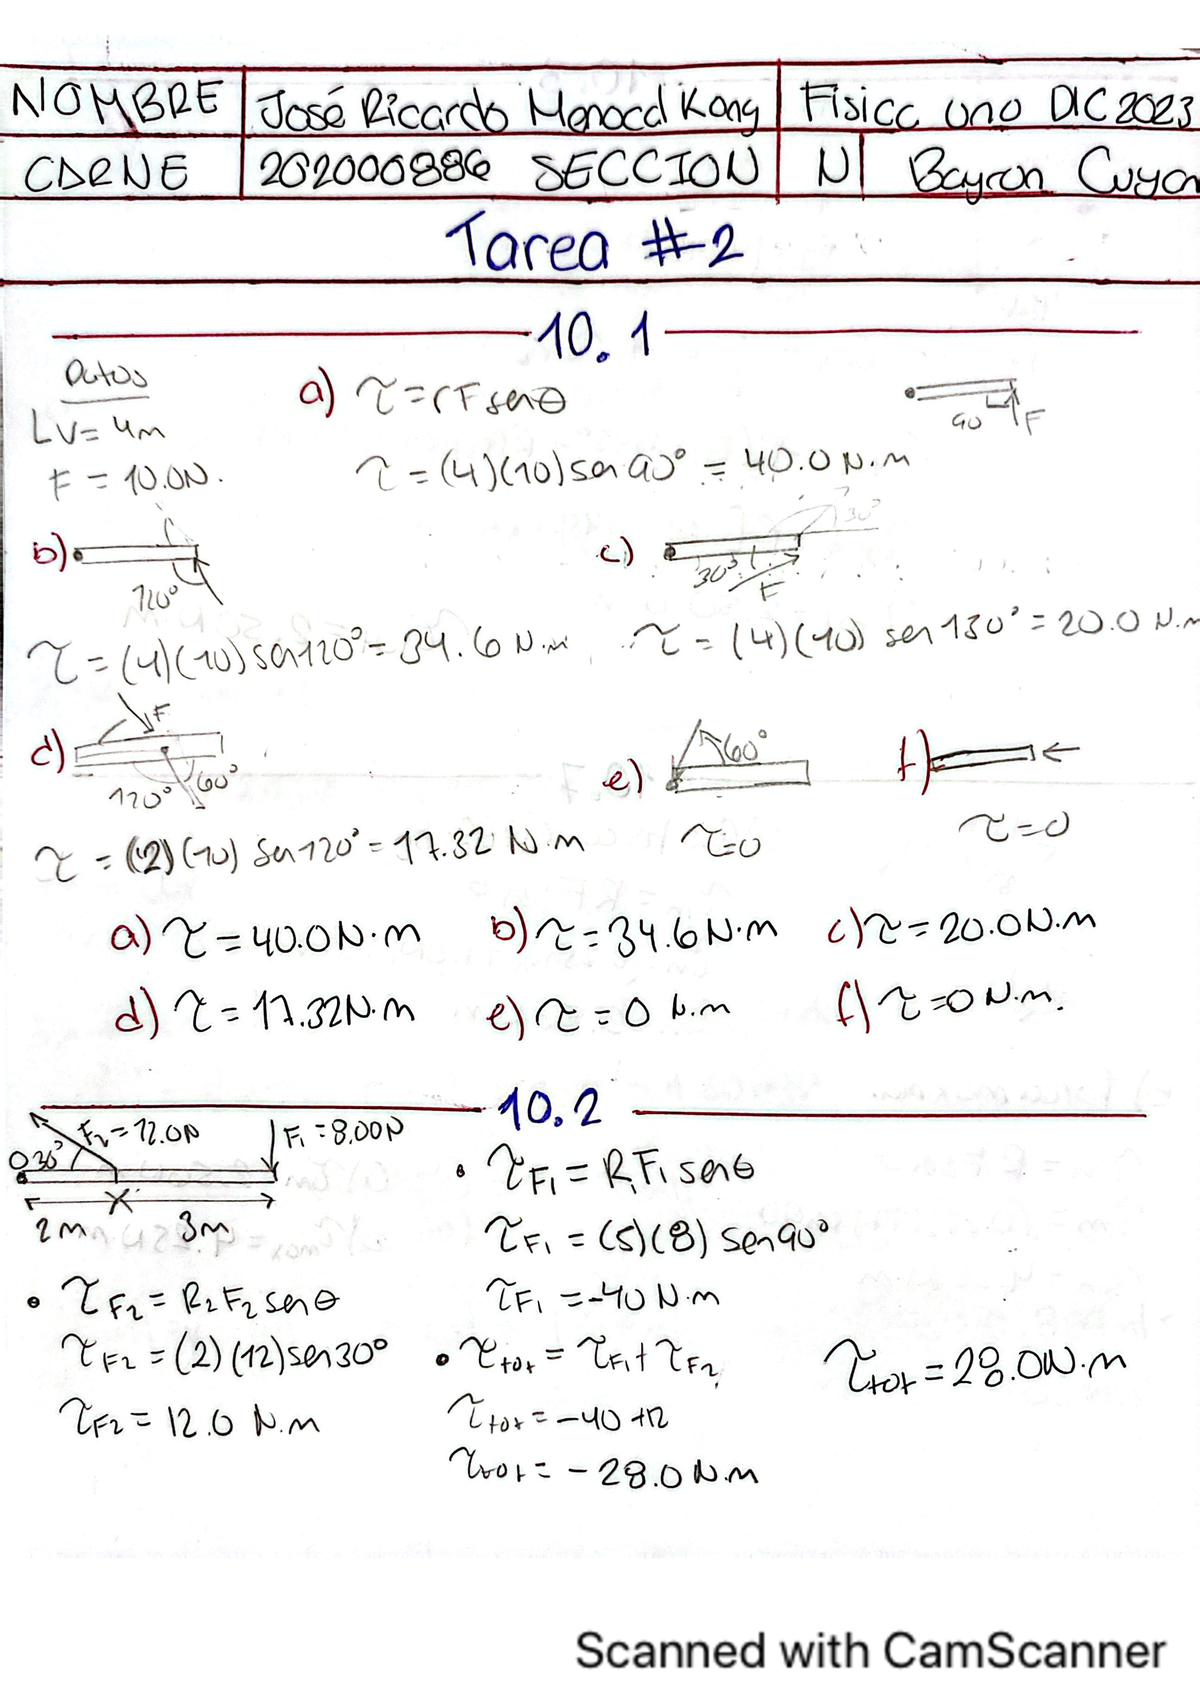 NOMBRE José Ricardo Menocal Kong Fisica uno DIC 2023
CARNE 202000886 SECCION N Bayron Cuyan
Tarea #2
10.1
Datos
LV= 4m
F = 10.0N.
a) τ = rFsenθ
τ = (4)(10)sen 90° = 40.0 N.m
90 F
b) 120°
τ = (4)(10)sen120° = 34.6 N.m
c) 30° 30° F
τ = (4)(10) sen 150° = 20.0 N.m
d) F 120° 60°
τ = (2)(10) sen120° = 17.32 N.m
e) 60°
τ=0
f)
τ=0
a) τ = 40.0N.m b) τ = 34.6 N.m c) τ = 20.0N.m
d) τ = 17.32N.m e) τ = 0 N.m f) τ = 0 N.m.
10.2
30° F2 = 12.0N F1 = 8.00N
2m 3m
• τF1 = R1F1 senθ
τF1 = (5)(8) sen90°
τF1 = -40 N.m
• τF2 = R2F2 senθ
τF2 = (2)(12)sen30°
τF2 = 12.0 N.m
• τtot = τF1 + τF2
τtot = -40 +12
τtot = -28.0 N.m
τtot = 28.0N.m
Scanned with CamScanner